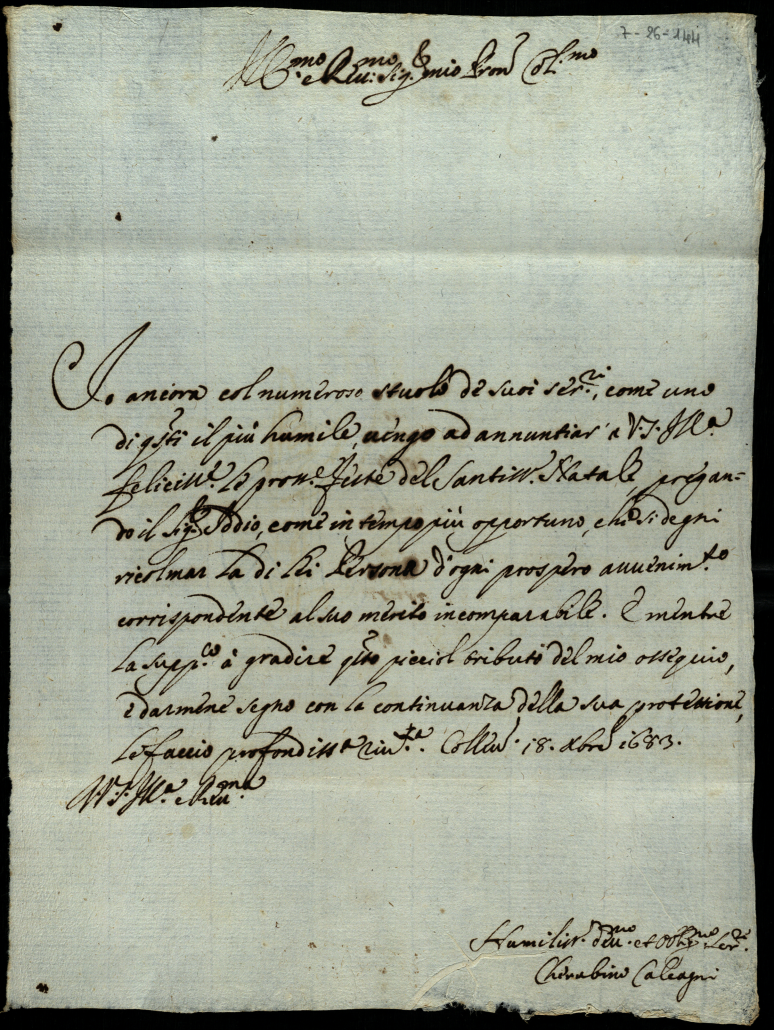 7-26-144
Ill.mo e Reu: Sig.r mio Pron Col.mo
Io ancora col numeroso stuolo de suoi ser.ri, come uno
di qsti il più humile, uengo ad annuntiar à V.S. Ill.a
feliciss.e le pross.e feste del Santiss.o Natale, pregan=
do il Sig.r Iddio, come in tempo più opportuno, che si degni
ricolmar la di lei Persona d'ogni prospero auuenim.to
corrispondente al suo merito incomparabile. E mentre
la supp.co à gradire qsto picciol tributo del mio ossequio,
e darmene segno con la continuanza della sua protettione,
le faccio profondiss.a riu.za. Colleu. 18. Xbre 1683.
D. V.S. Ill.a e Reu.ma
Humiliss. deu.mo et Obl.mo Ser.re
Cherubino Calcagni